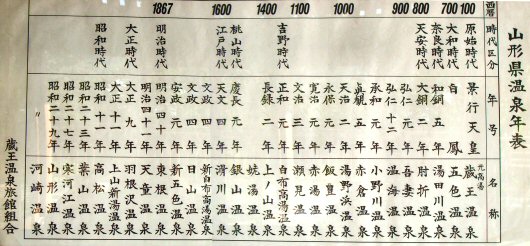 山形県温泉年表
西暦
100
700
800
900
1000
1100
1400
1600
1867
時代区分
原始時代
大和時代
奈良時代
天安時代
吉野時代
桃山時代
江戸時代
明治時代
大正時代
昭和時代
年号
景行天皇
白鳳
和銅五年
大銅二年
弘仁元年
弘仁十二年
承和元年
貞観元年
天治二年
永保元年
寛治元年
文治三年
正和元年
長録二年
慶長元年
天文四年
文政四年
文政四年
安政元年
明治四十年
明治四十一年
大正九年
大正十一年
昭和二年
昭和二十三年
昭和二十七年
昭和二十九年
〃
名称
元高湯
蔵王温泉
五色温泉
湯田川温泉
肘折温泉
吾妻温泉
温海温泉
小野川温泉
赤倉温泉
湯野浜温泉
飯豊温泉
赤湯温泉
瀬見温泉
白布高湯温泉
上ノ山温泉
姥湯温泉
銀山温泉
滑川温泉
新白布高湯温泉
日山温泉
新五色温泉
東根温泉
天童温泉
羽根沢温泉
上山新湯温泉
高松温泉
葉山温泉
寒河江温泉
山形温泉
河崎温泉
蔵王温泉旅館組合